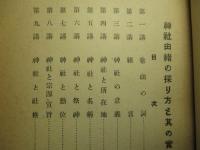 神社由緒の採り方と其の實
目次
第一講 巻頭の詞
第二講 緒言
第三講 神社の意義
第四講 神社と所在地
第五講 神社と名稱
第六講 神社と祭神
第七講 神社と勳位
第八講 神社と宗源ノ宣旨
第九講 神社と社格